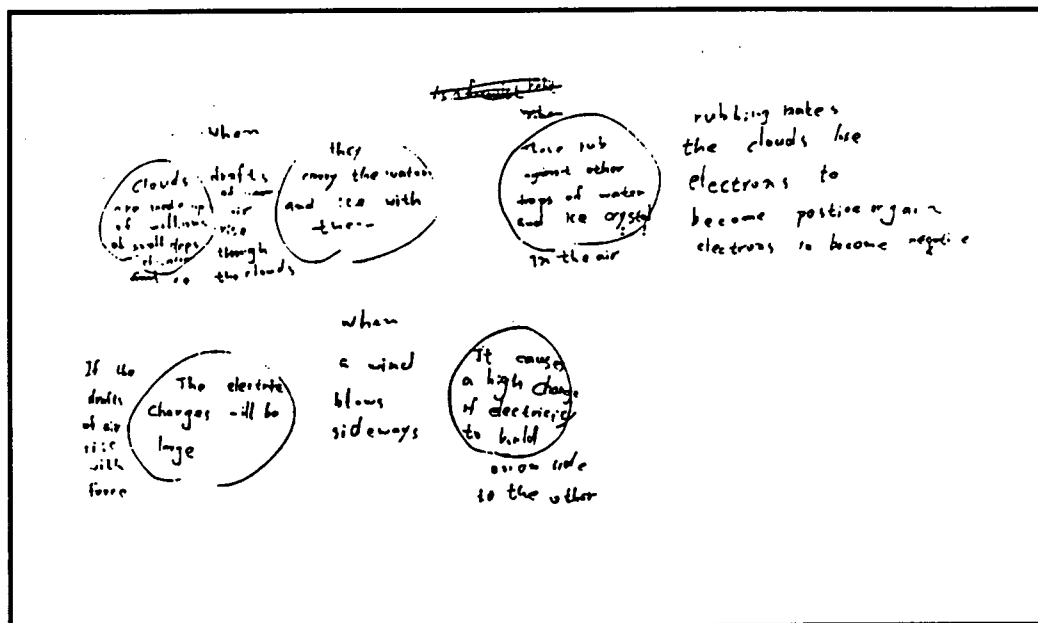 when
clouds
are made up
of millions
of small drops
and ice
drafts
of
air
rise
though
the clouds
they
carry the water
and ice with
them
when
these rub
against other
drops of water
and ice crystal
in the air
rubbing makes
the clouds lose
electrons to
become postive or gain
electrons to become negative
If the
drafts
of air
rise
with
force
The electric
charges will be
large
when
a wind
blows
sideways
It causes
a high charge
of electricity
to build
on one side
to the other